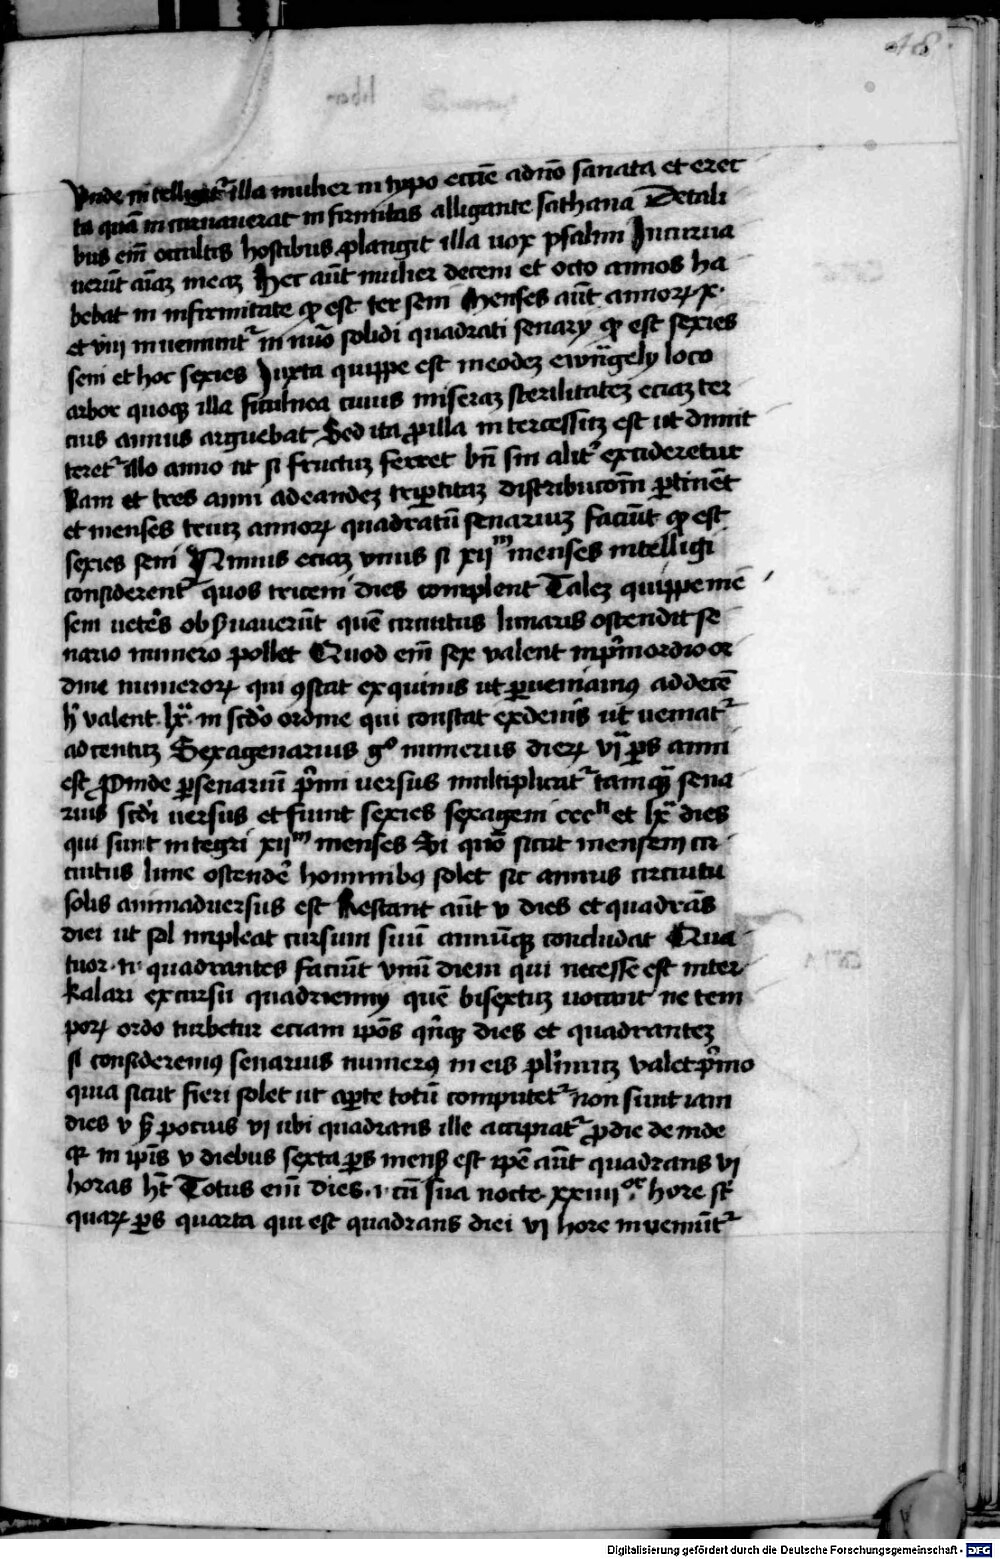 48.
Vnde intelligit᷑ illa mulier in typo eccl̄e a dn̄o sanata et erec
ta quā incuruauerat infirmitas alligante sathana De tali
bus em̄ occultis hostibus plangit illa uox psalmi Incurua
uerūt aīaꝫ meaꝫ Hec aūt mulier decem et octo annos ha
bebat in infirmitate qđ est ter seni Menses aūt annoꝝ x
et viii inueniunt᷑ in nūo solidi quadrati senarij qđ est sexies
seni et hoc sexies Iuxta quippe est in eodeꝫ ewāngely loco
arbor quoqꝫ illa ficulnea cuius miseraꝫ sterilitateꝫ eciaꝫ ter
cius annus arguebat Sed ita ꝓ illa intercessuꝫ est ut dimit
teret᷑ illo anno ut si fructuꝫ ferret bn̄ sin alit᷑ excideretur
Nam et tres anni ad eandeꝫ tripartitaꝫ distribucōm ꝑtinēt
et menses triuꝫ annoꝝ quadratū senariuꝫ faciūt qđ est
sexies seni Annus eciaꝫ vnus si xii menses intelligi
considerent᷑ quos triceni dies complent Taleꝫ quippe mē
sem ueteꝭs obẜuauerūt quē circuitus lunaris ostendit se
nario numero pollet Quod em̄ sex valent in pͥmordio or
dine numeroꝝ qui ꝯstat ex quinis ut ꝑueniamꝰ ad decē
hͦ valent lx in scd̄o ordine qui constat ex denis ut veniat᷑
ad centuꝫ Sexagenarius gͦ numerus dieꝝ vi ꝑs anni
est Proinde ꝑ senariū pͥmi versus multiplicat᷑ tamqꝫ sena
rius scd̄i versus et fiunt sexies sexageni ccc et lx dies
qui sunt integri xii menses Si quō sicut mensem cir
cuitus lune ostendē hominibꝰ solet sic annus circuitu
solis animaduersus est Restant aūt v dies et quadrās
diei ut sol impleat cursum suū annūqꝫ concludat Qua
tuor n quadrantes faciūt vnū diem qui necesse est inter
kalari excursu quadriennij quē bisextuꝫ uocant ne tem
poꝝ ordo turbetur eciam ipōs qn̄qꝫ dies et quadranteꝫ
si consideremꝰ senarius numerꝰ in eis plͥmuꝫ valet pͥmo
quia sicut fieri solet ut a ꝑte totū computet᷑ non sunt iam
dies v ẜ pocius vi ubi quadrans ille accipiat᷑ ꝓ die deinde
qꝛ in ipīs v diebus sexta ꝑs mensꝭ est ipē aūt quadrans vi
horas hꝫ Totus em̄ dies i cū sua nocte xxiiii hore st̄
quaꝝ ꝑs quarta qui est quadrans diei vi hore inueniūt᷑
Digitalisierung gefördert durch die Deutsche Forschungsgemeinschaft - DFG